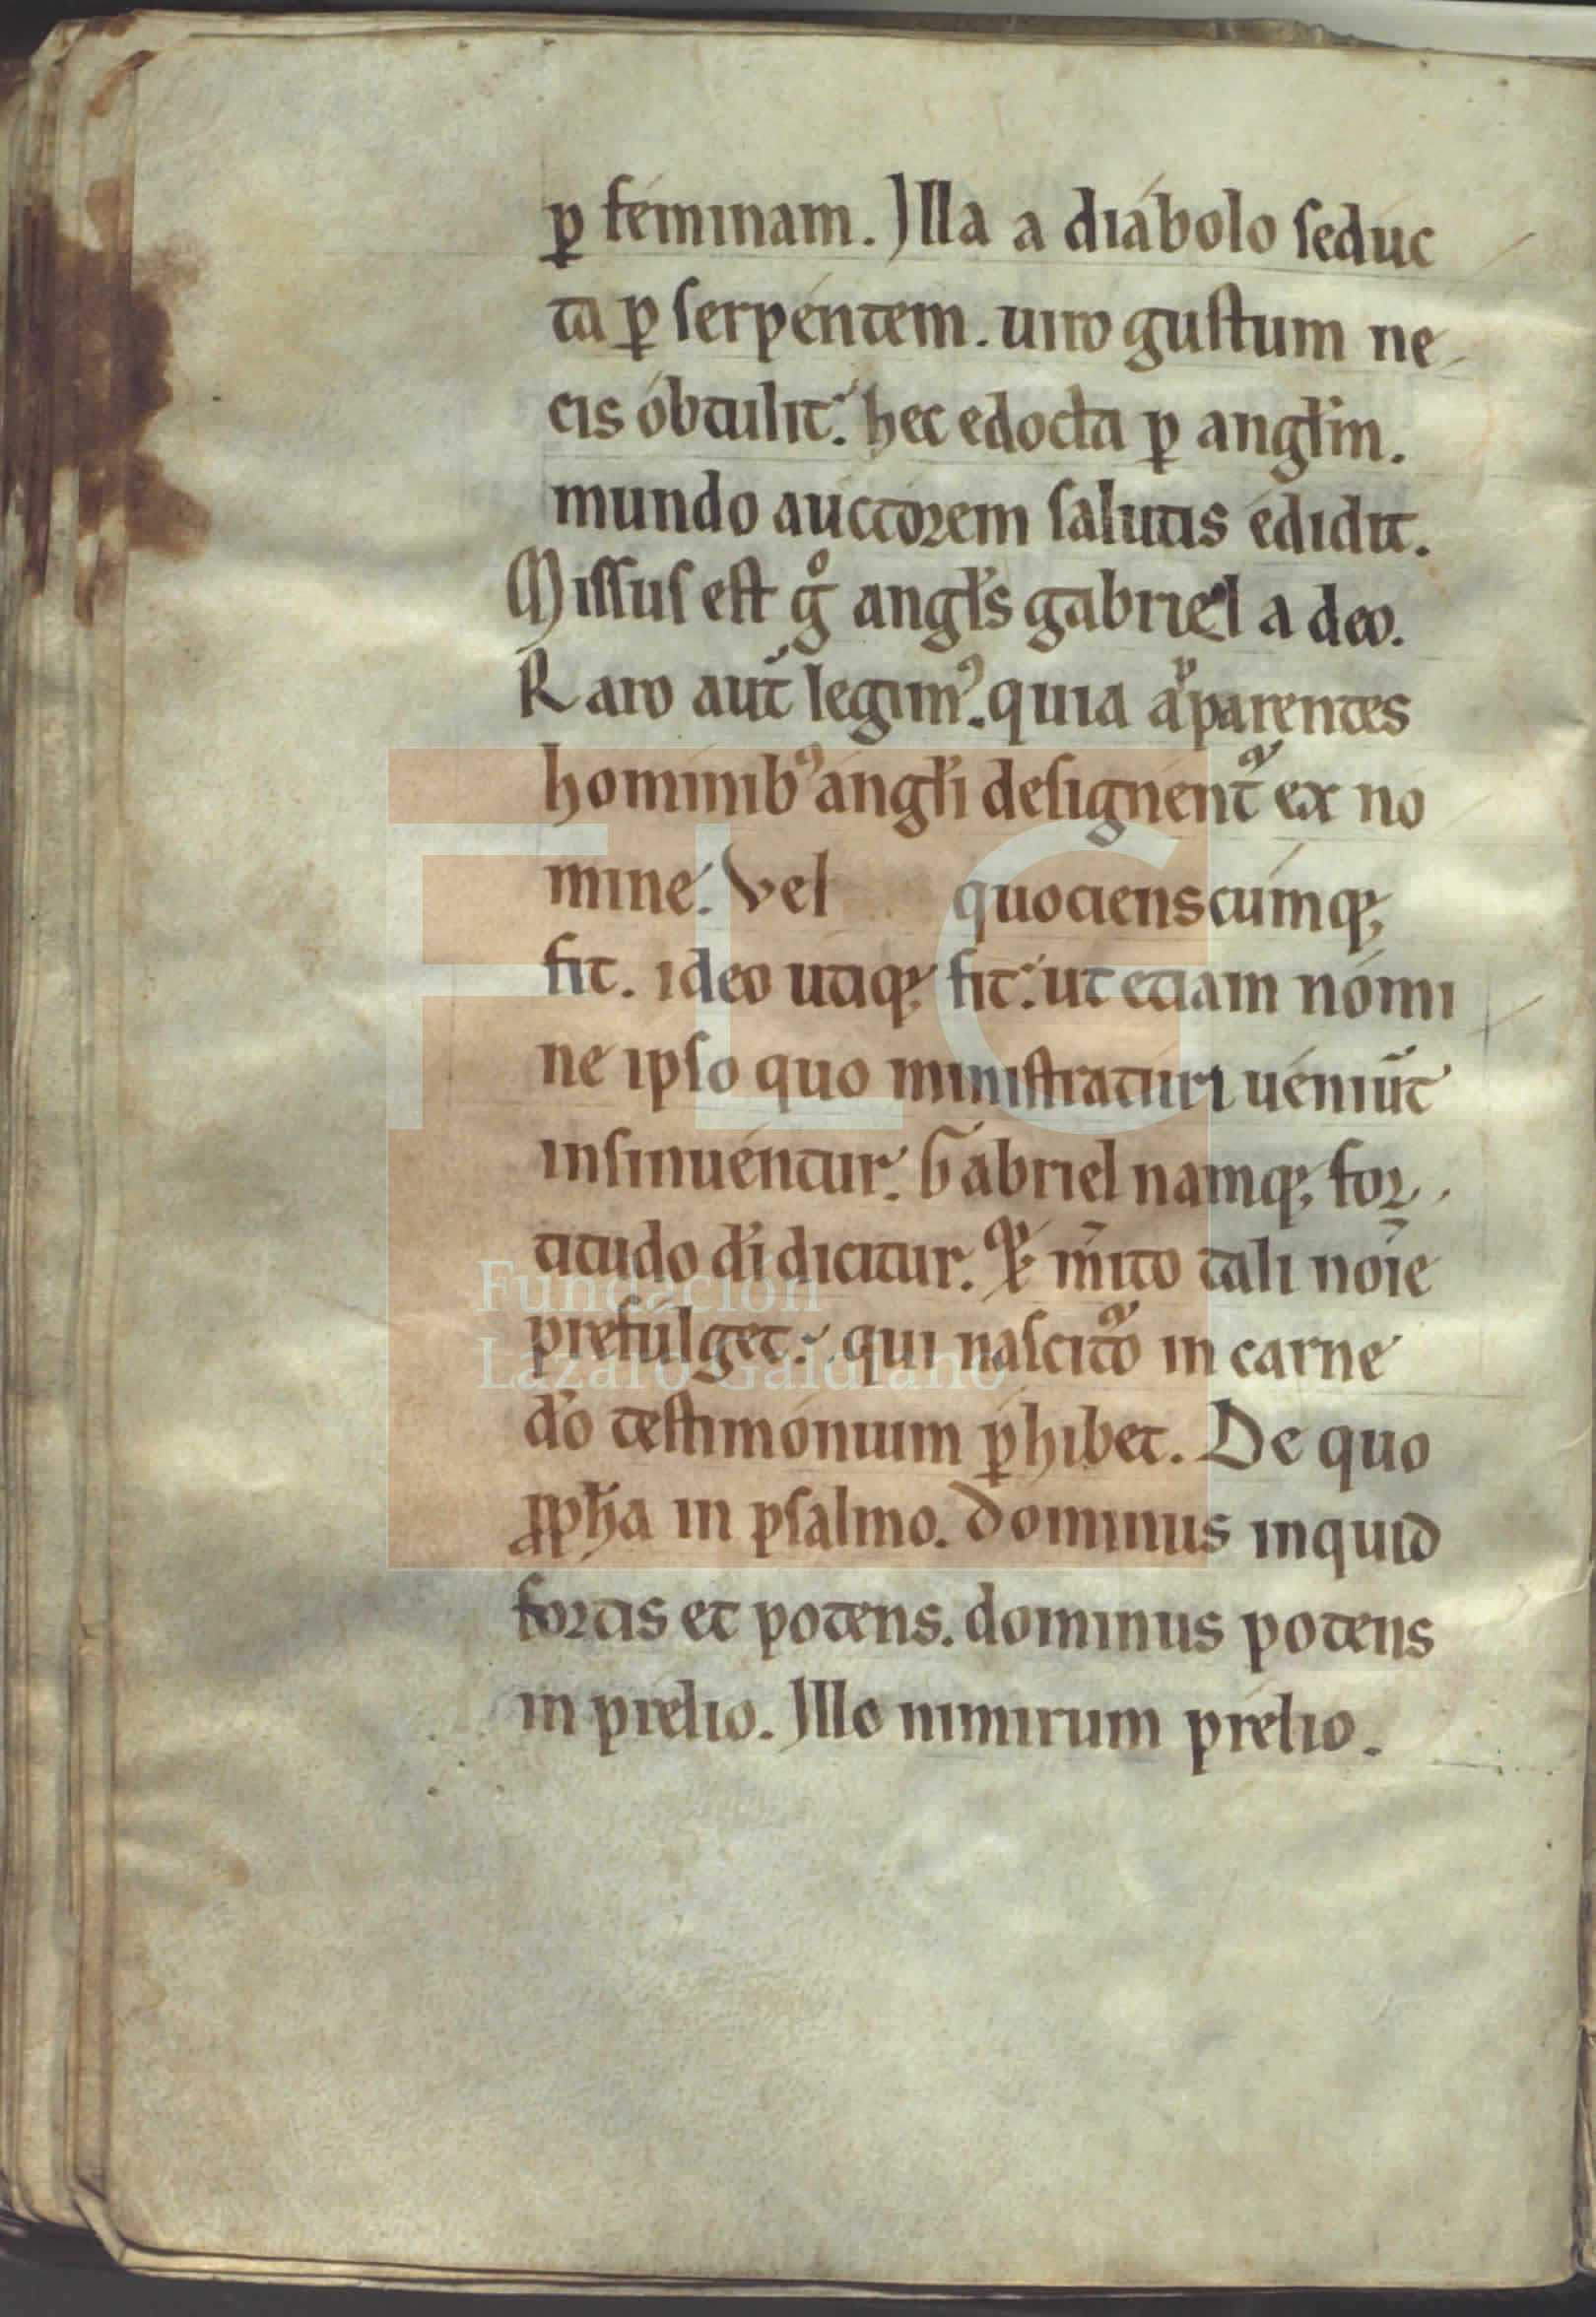 ꝑ féminam. Illa a diábolo seduc
ta ꝑ serpéntem. uiro gustum ne-
cis óbtulit. hec edocta ꝑ angl̃m.
mundo auctorem salutis édidit.
Missus est gͦ angl̃s gabriel a deo.
Raro aut̃ legimꝰ. quia aᵖparentes
hominibꝰ angl̃i designent᷑ ex no
mine. Vel quocienscúmqꝫ
fit. ideo utiqꝫ fit. ut etiam nómi
ne ipso quo ministraturi uéniũt
insinuéntur. Gabriel namqꝫ for-
titudo dĩ dicitur. Et m̃ito tali noĩe
prefúlget. qui nascit᷑o in carne
dõ testimónium ꝑhibet. De quo
ꝓph̃a in psalmo. dominus inquid
fortis et potens. dominus potens
in prelio. Illo nimirum prélio.
FLG
Fundación
Lázaro Galdiano